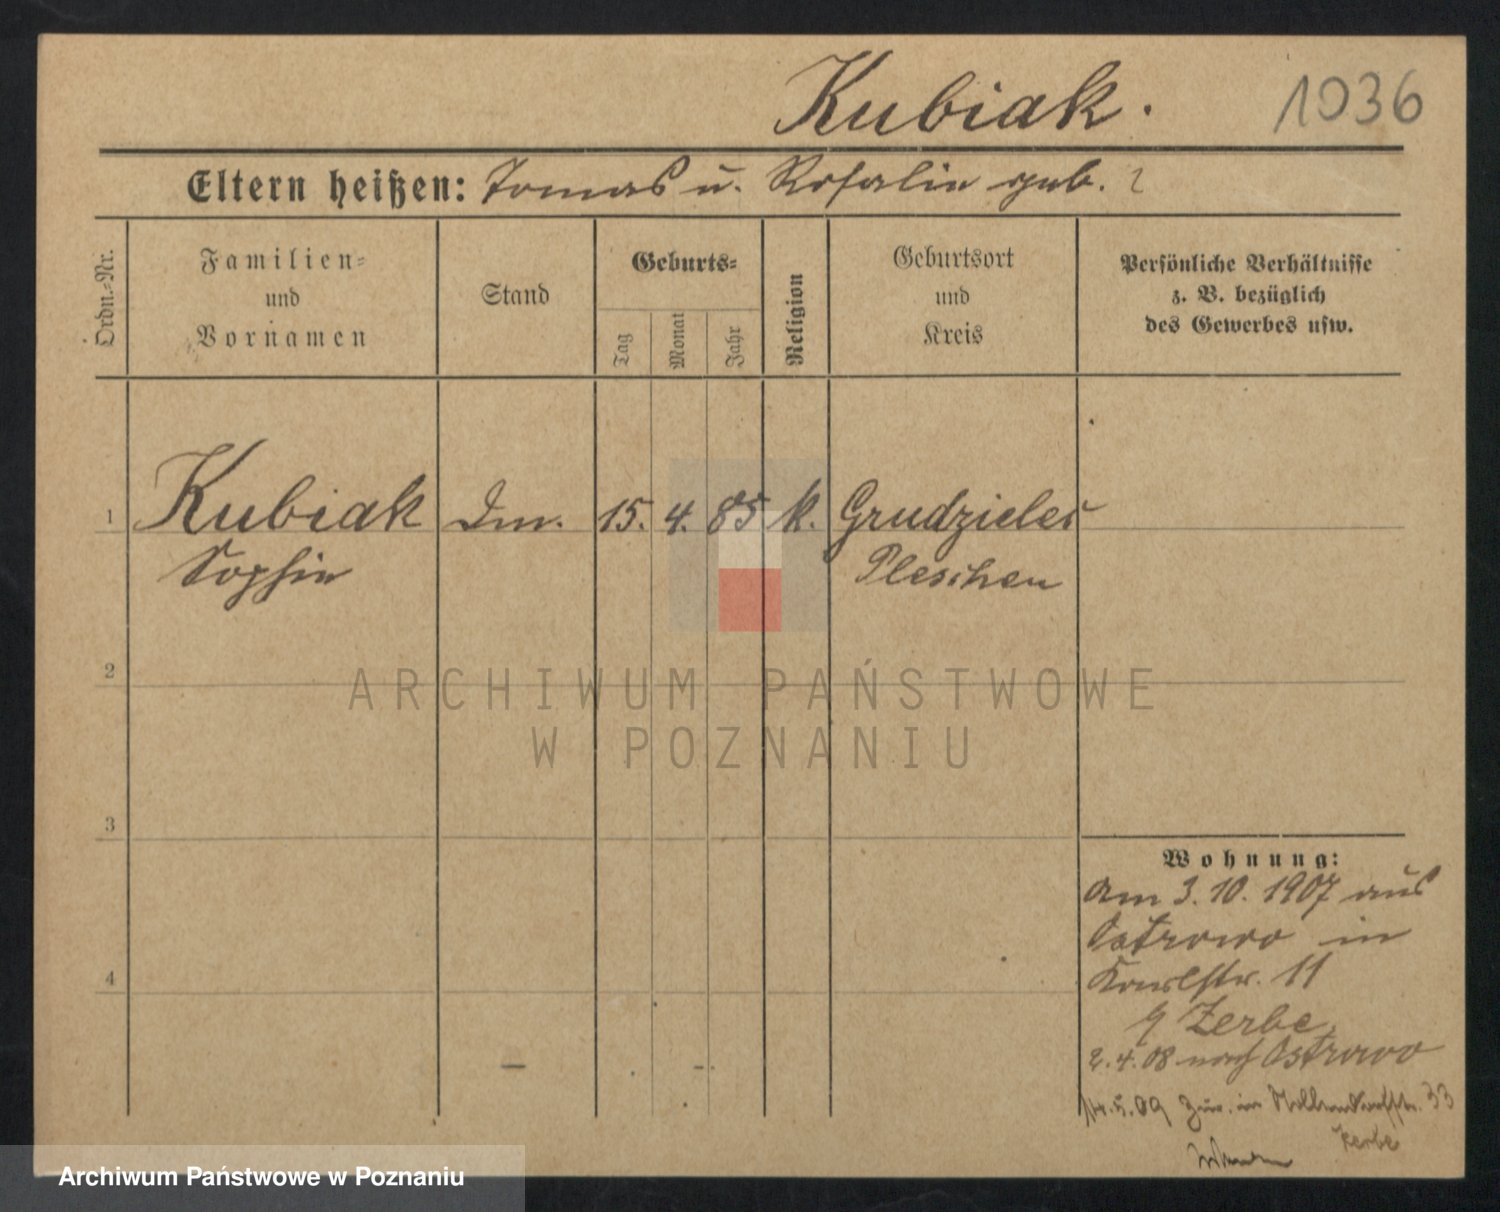 Kubiak. 1036
Eltern heißen: Tomas u. Rosalie geb. ?
Ordn.-Nr.
Familien-
und
Vornamen
Stand
Geburts-
Tag
Monat
Jahr
Religion
Geburtsort
und
Kreis
Persönliche Verhältnisse
z. B. bezüglich
des Gewerbes usw.
1 Kubiak 15. 4. 85 k. Grudzielec
Sophie Pleschen
2
ARCHIWUM PAŃSTWOWE
W POZNANIU
3
Wohnung:
Am 3. 10. 1907 aus
Ostrowo in
11
Zerbe
2. 4. 08 nach Ostrowo
09 Zuz. in 33
Zerbe
4
Archiwum Państwowe w Poznaniu